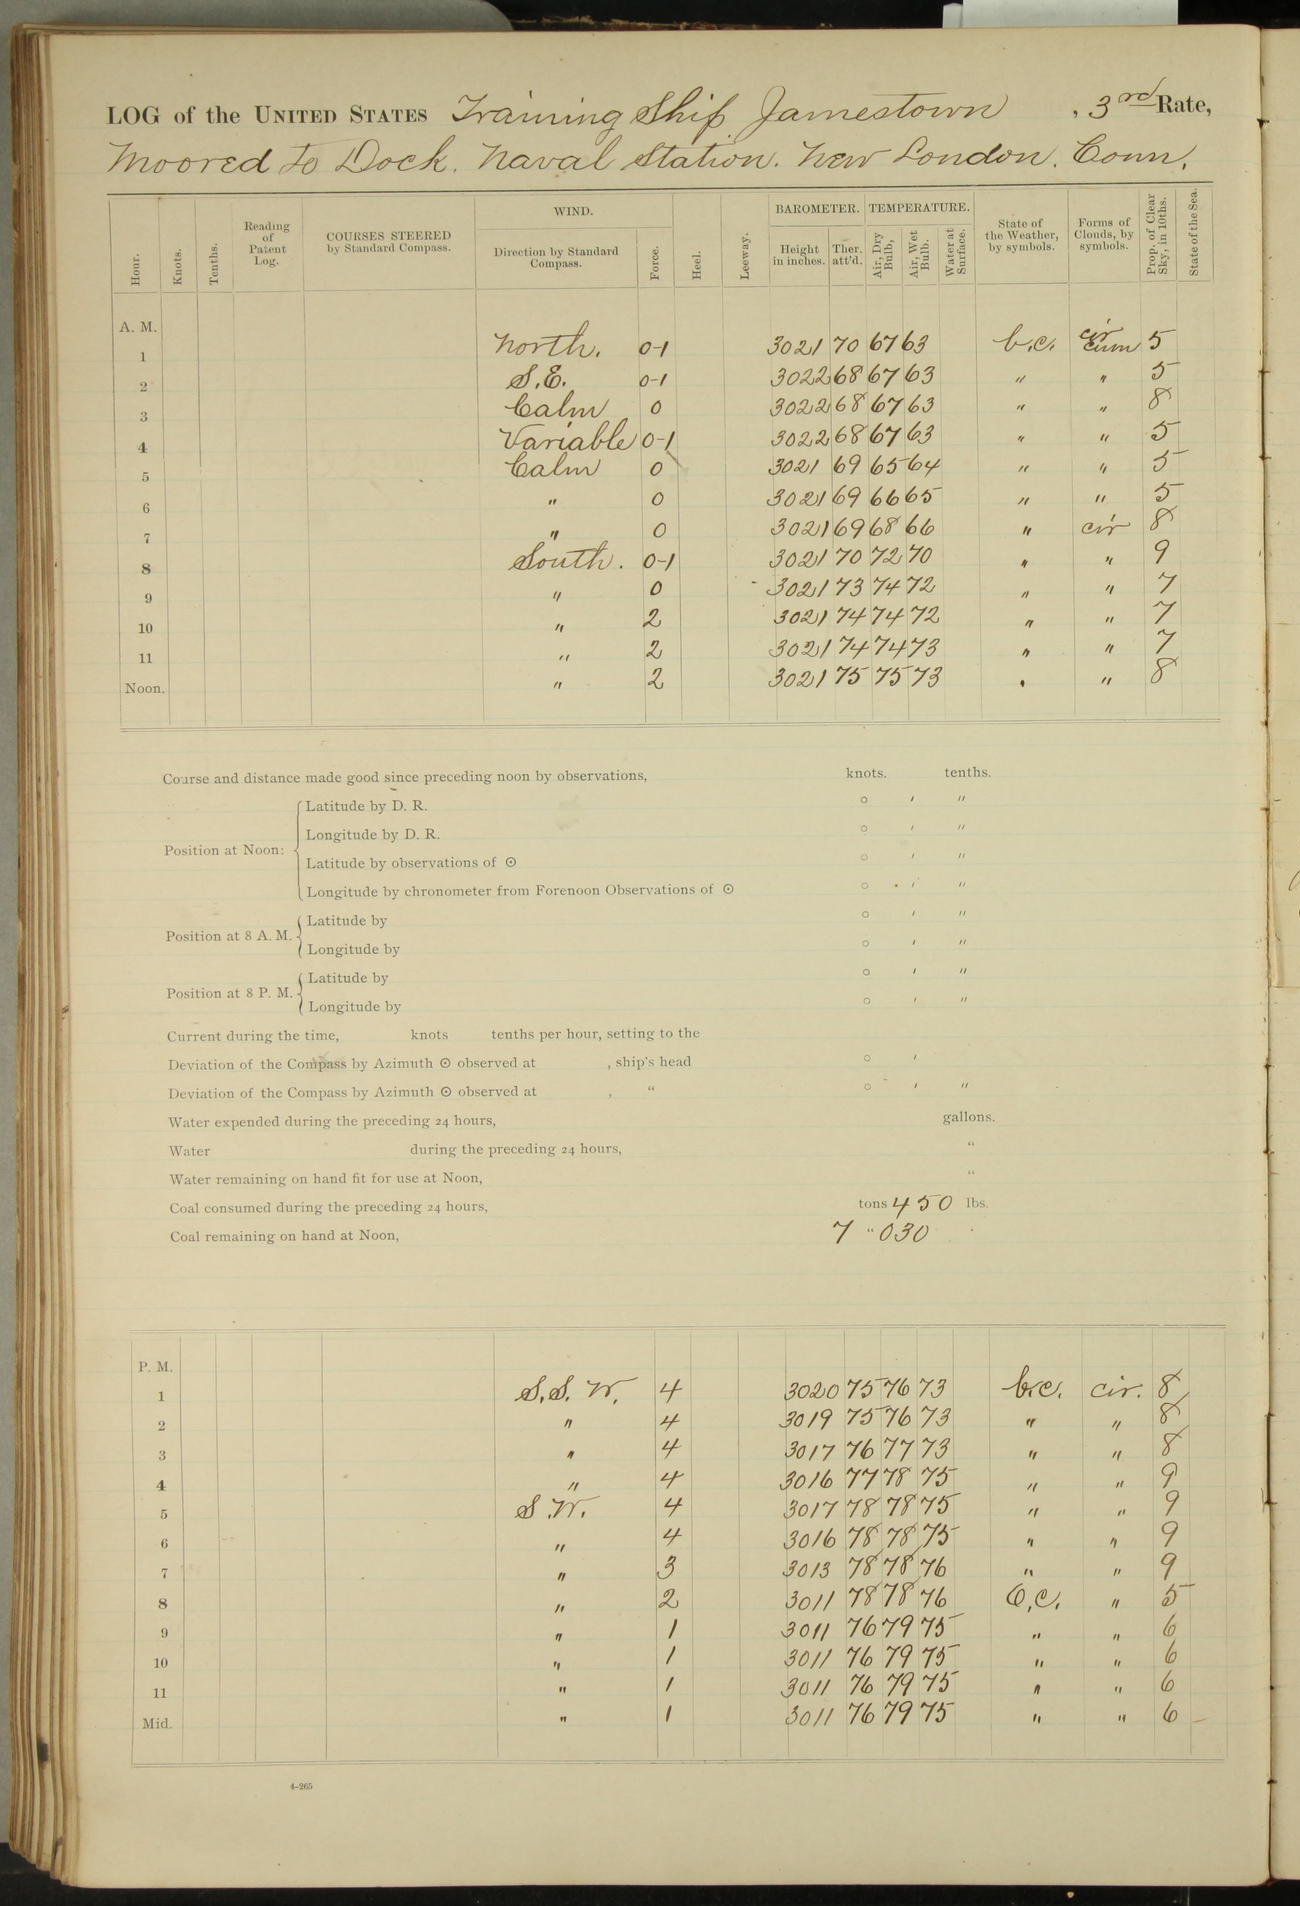 LOG of the UNITED STATES Training Ship Jamestown , 3rd Rate,
Moored to Dock. Naval Station. New London. Conn.
Hour. Knots. Tenths. Reading of Patent Log. COURSES STEERED by Standard Compass. WIND. Direction by Standard Compass. Force. Heel. Leeway. BAROMETER. Height in inches. Ther. att'd. TEMPERATURE. Air, Dry Bulb, Air, Wet Bulb. Water at Surface. State of the Weather, by symbols. Forms of Clouds, by symbols. Prop. of Clear Sky, in 10ths. State of the Sea.
A. M.
1 North. 0-1 3021 70 67 63 b.c. cir cum 5
2 S.E. 0-1 3022 68 67 63 " " 5
3 Calm 0 3022 68 67 63 " " 8
4 Variable 0-1 3022 68 67 63 " " 5
5 Calm 0 3021 69 65 64 " " 5
6 " 0 3021 69 66 65 " " 5
7 " 0 3021 69 68 66 " cir 8
8 South. 0-1 3021 70 72 70 " " 9
9 " 0 3021 73 74 72 " " 7
10 " 2 3021 74 74 72 " " 7
11 " 2 3021 74 74 73 " " 7
Noon. " 2 3021 75 75 73 " " 8
Course and distance made good since preceding noon by observations, knots. tenths.
Position at Noon:
Latitude by D. R. ° ′ ″
Longitude by D. R. ° ′ ″
Latitude by observations of ⊙ ° ′ ″
Longitude by chronometer from Forenoon Observations of ⊙ ° ′ ″
Position at 8 A. M.
Latitude by ° ′ ″
Longitude by ° ′ ″
Position at 8 P. M.
Latitude by ° ′ ″
Longitude by ° ′ ″
Current during the time, knots tenths per hour, setting to the
Deviation of the Compass by Azimuth ⊙ observed at , ship's head ° ′
Deviation of the Compass by Azimuth ⊙ observed at , " ° ′ ″
Water expended during the preceding 24 hours, gallons.
Water during the preceding 24 hours, "
Water remaining on hand fit for use at Noon, "
Coal consumed during the preceding 24 hours, tons 450 lbs.
Coal remaining on hand at Noon, 7 " 030
P. M.
1 S.S.W. 4 3020 75 76 73 b.c. cir. 8
2 " 4 3019 75 76 73 " " 8
3 " 4 3017 76 77 73 " " 8
4 " 4 3016 77 78 75 " " 9
5 S.W. 4 3017 78 78 75 " " 9
6 " 4 3016 78 78 75 " " 9
7 " 3 3013 78 78 76 " " 9
8 " 2 3011 78 78 76 O.C. " 5
9 " 1 3011 76 79 75 " " 6
10 " 1 3011 76 79 75 " " 6
11 " 1 3011 76 79 75 " " 6
Mid. " 1 3011 76 79 75 " " 6
4-265